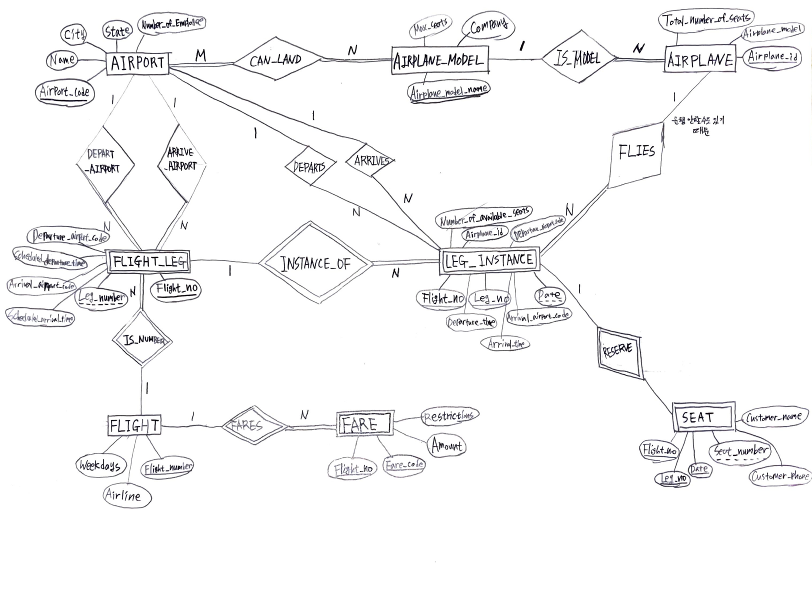 City
State
Number_of_Employee
Name
AIRPORT
Airport_code
M
CAN_LAND
N
Max_seats
Company
AIRPLANE_MODEL
Airplane_model_name
1
IS_MODEL
N
Total_number_of_seats
Airplane_model
AIRPLANE
Airplane_id
1
1
1
1
1
DEPART
_AIRPORT
ARRIVE
_AIRPORT
DEPARTS
ARRIVES
FLIES
N
N
N
N
N
Departure_airport_code
Scheduled_departure_time
Arrival_airport_code
Scheduled_arrival_time
FLIGHT_LEG
Leg_number
Flight_no
1
INSTANCE_OF
N
Number_of_available_seats
Airplane_id
LEG_INSTANCE
Flight_no
Leg_no
Date
Departure_time
Arrival_airport_code
Arrival_time
N
IS_NUMBER
1
1
RESERVE
FLIGHT
1
FARES
N
FARE
Restrictions
Amount
Flight_no
Fare_code
Weekdays
Flight_number
Airline
SEAT
Customer_name
Flight_no
Leg_no
Date
Seat_number
Customer_phone